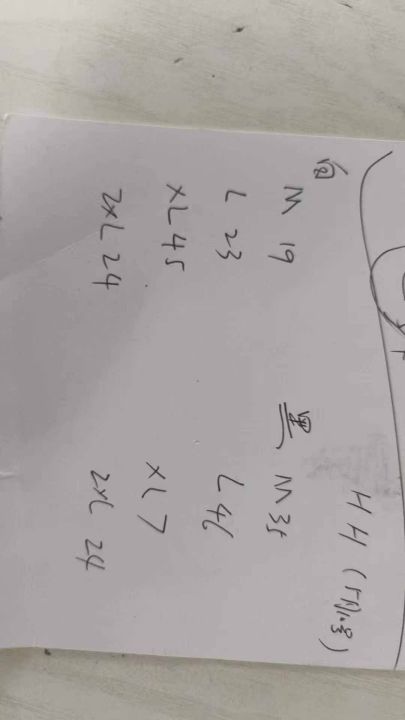 HH（5月8号）
白
M 19
L 23
XL 45
2XL 24
黑
M 35
L 46
XL 7
2XL 24